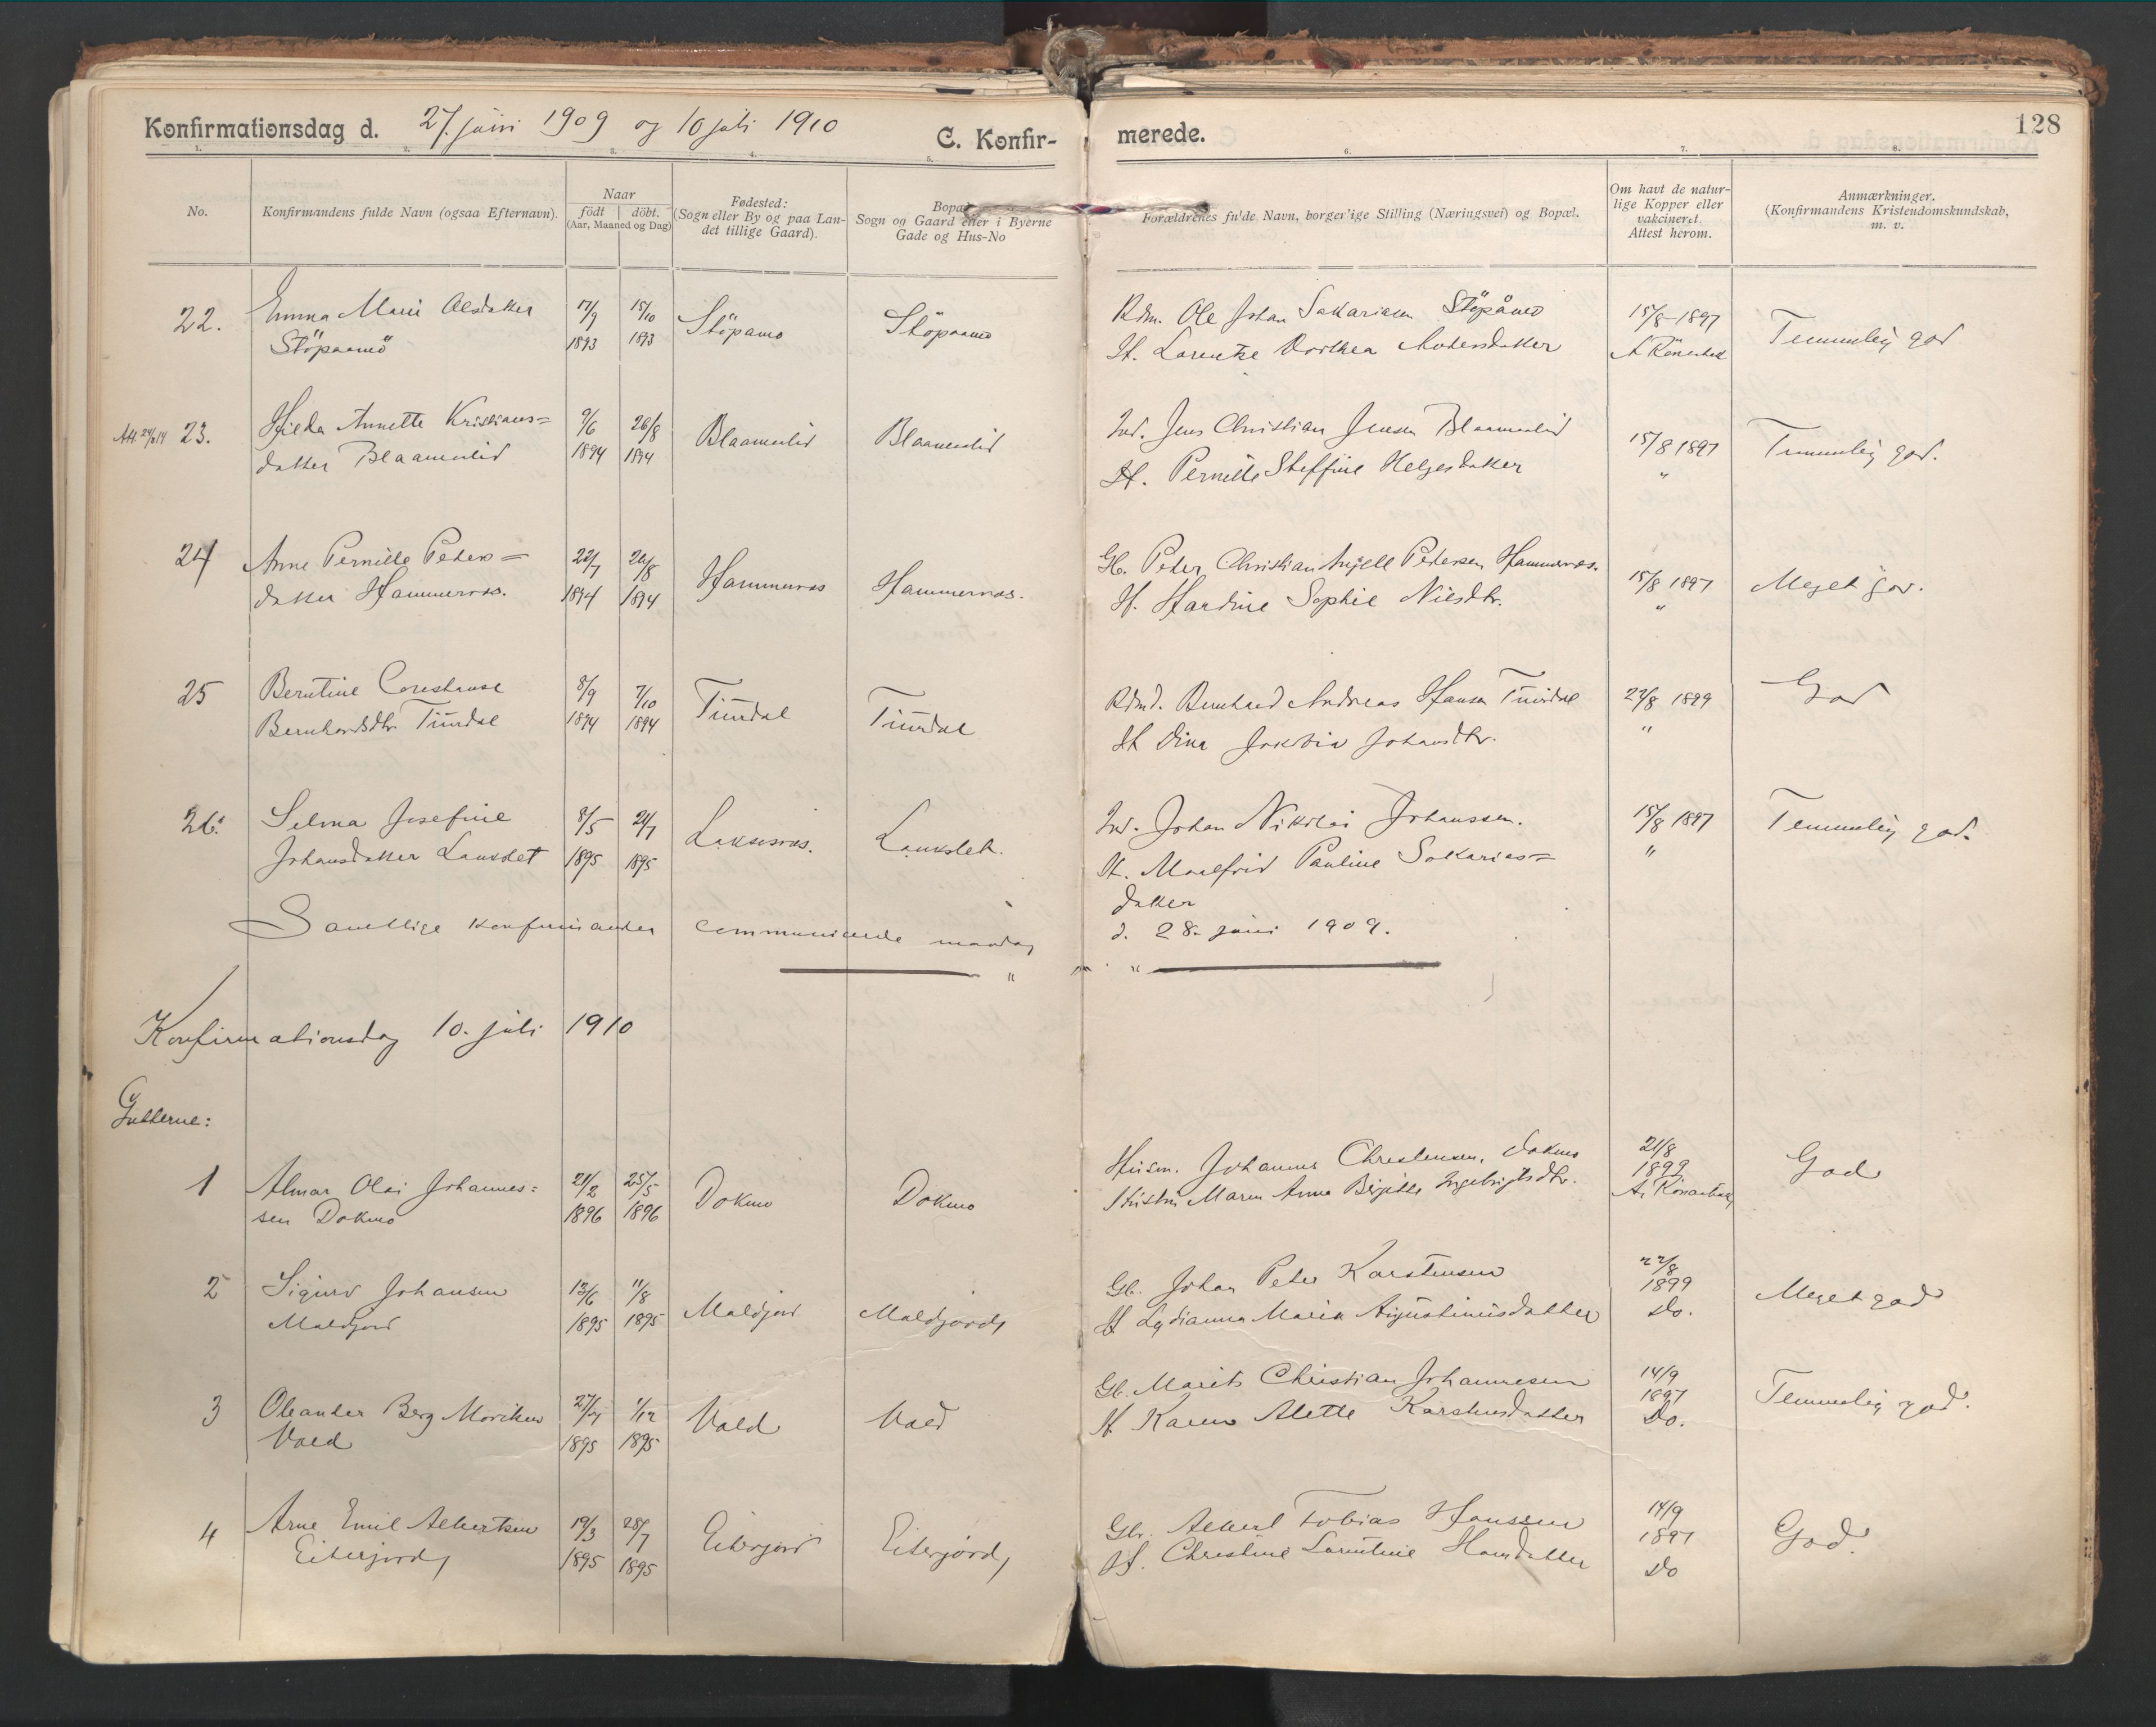 Konfirmationsdag d. 27. juni 1909 og 10 juli 1910
C. Konfir-
merede.
128
1. 2. 3. 4. 5. 6. 7. 8.
No.
Konfirmandens fulde Navn (ogsaa Efternavn).
Naar
födt döbt.
(Aar, Maaned og Dag)
Fødested:
(Sogn eller By og paa Lan-
det tillige Gaard).
Bopæl
Sogn og Gaard eller i Byerne
Gade og Hus-No
Forældrenes fulde Navn, borgerlige Stilling (Næringsvei) og Bopæl.
Om havt de natur-
lige Kopper eller
vakcineret.
Attest herom.
Anmærkninger.
(Konfirmandens Kristendomskundskab,
m. v.
22. Emma Marie Olsdatter
Stöpaamo
17/9 1893
15/10 1893
Stöpamo
Stöpaamo
Rdm. Ole Johan Sakariasen Stöpåmo
H. Lorentze Dorthea Andersdatter
15/8 1897
Temmelig god
23. Hilda Annette Kristians=
datter Blaamulid
9/6 1894
26/8 1894
Blaamulid
Blaamulid
Ind. Jens Christian Jensen Blaamulid
H. Pernille Steffine Helgesdatter
15/8 1897
"
Temmelig god.
24 Anne Pernille Peters=
datter Hammernes.
22/7 1894
26/8 1894
Hammernes
Hammernes.
Gb. Peter Christian Angell Pedersen Hammernes.
H. Hardine Sophie Nilsdtr.
15/8 1897
"
Meget god.
25 Berntine Constanse
Bernhardsdtr. Tüvdal
8/9 1894
7/10 1894
Rdmd. Bernhard Andreas Hansen
H Dina Jakobia Johansdtr.
22/8 1899
"
God
26. Selma Josefine
Johansdatter Laukslet
8/5 1895
21/7 1895
Laksesnes.
Laukslet.
Ind. Johan Nikolai Johanssen.
H. Maalfrid Pauline Sakarias=
datter
15/8 1897
"
Temmelig god.
Samtlige konfirmanter communicerte mandag
d. 28. juni 1909.
" "
Konfirmationsdag 10. juli 1910
Gutterne:
1 Almar Olai Johannes=
sen Dokmo
21/2 1896
25/5 1896
Dokmo
Dokmo
Husm. Johannes Christensen, Dokmo
Hustru Maren Anna Birgitte Ingebrigtsdtr.
21/8
1899
God
2 Sigurd Johansen
Maldjord
13/6 1895
11/8 1895
Maldjord
Maldjord,
Gb. Johan Peter Karstensen
H Lydianna Maria Augustinusdatter
22/8
1899
Do.
Meget god
3 Oleanter Berg Moritsen
Vold
1895
1/12 1895
Vold
Vold
Gb. Morits Christian Johannesen
H. Karen Alette Karstensdatter
14/9
1897
Do.
Temmelig god.
4 Arne Emil Albertsen
Eiterjord,
19/3 1895
28/7 1895
Eiterjord
Eiterjord,
Gbr. Albert Tobias Hanssen
H. Christine Larntine Hansdatter
14/9
1897
Do
God.